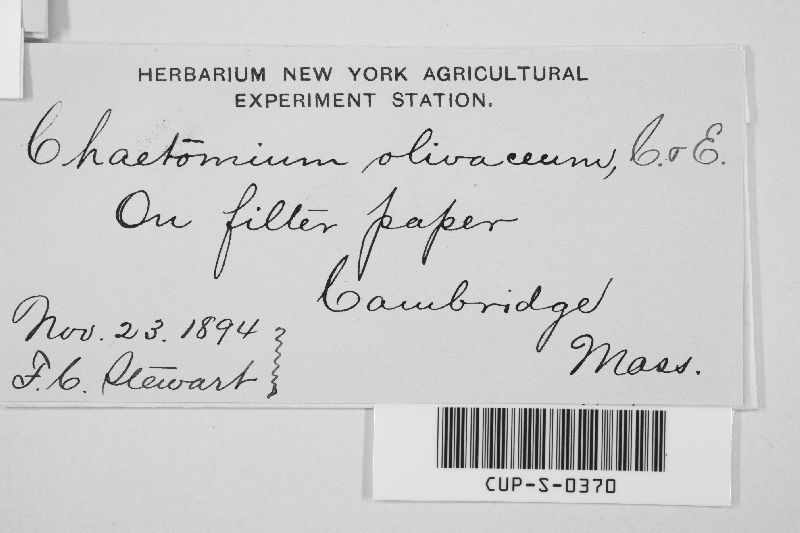 HERBARIUM NEW YORK AGRICULTURAL
EXPERIMENT STATION.
Chaetomium olivaceum, C. & E.
On filter paper
Cambridge
Mass.
Nov. 23. 1894
F. C. Stewart
CUP-S-0370